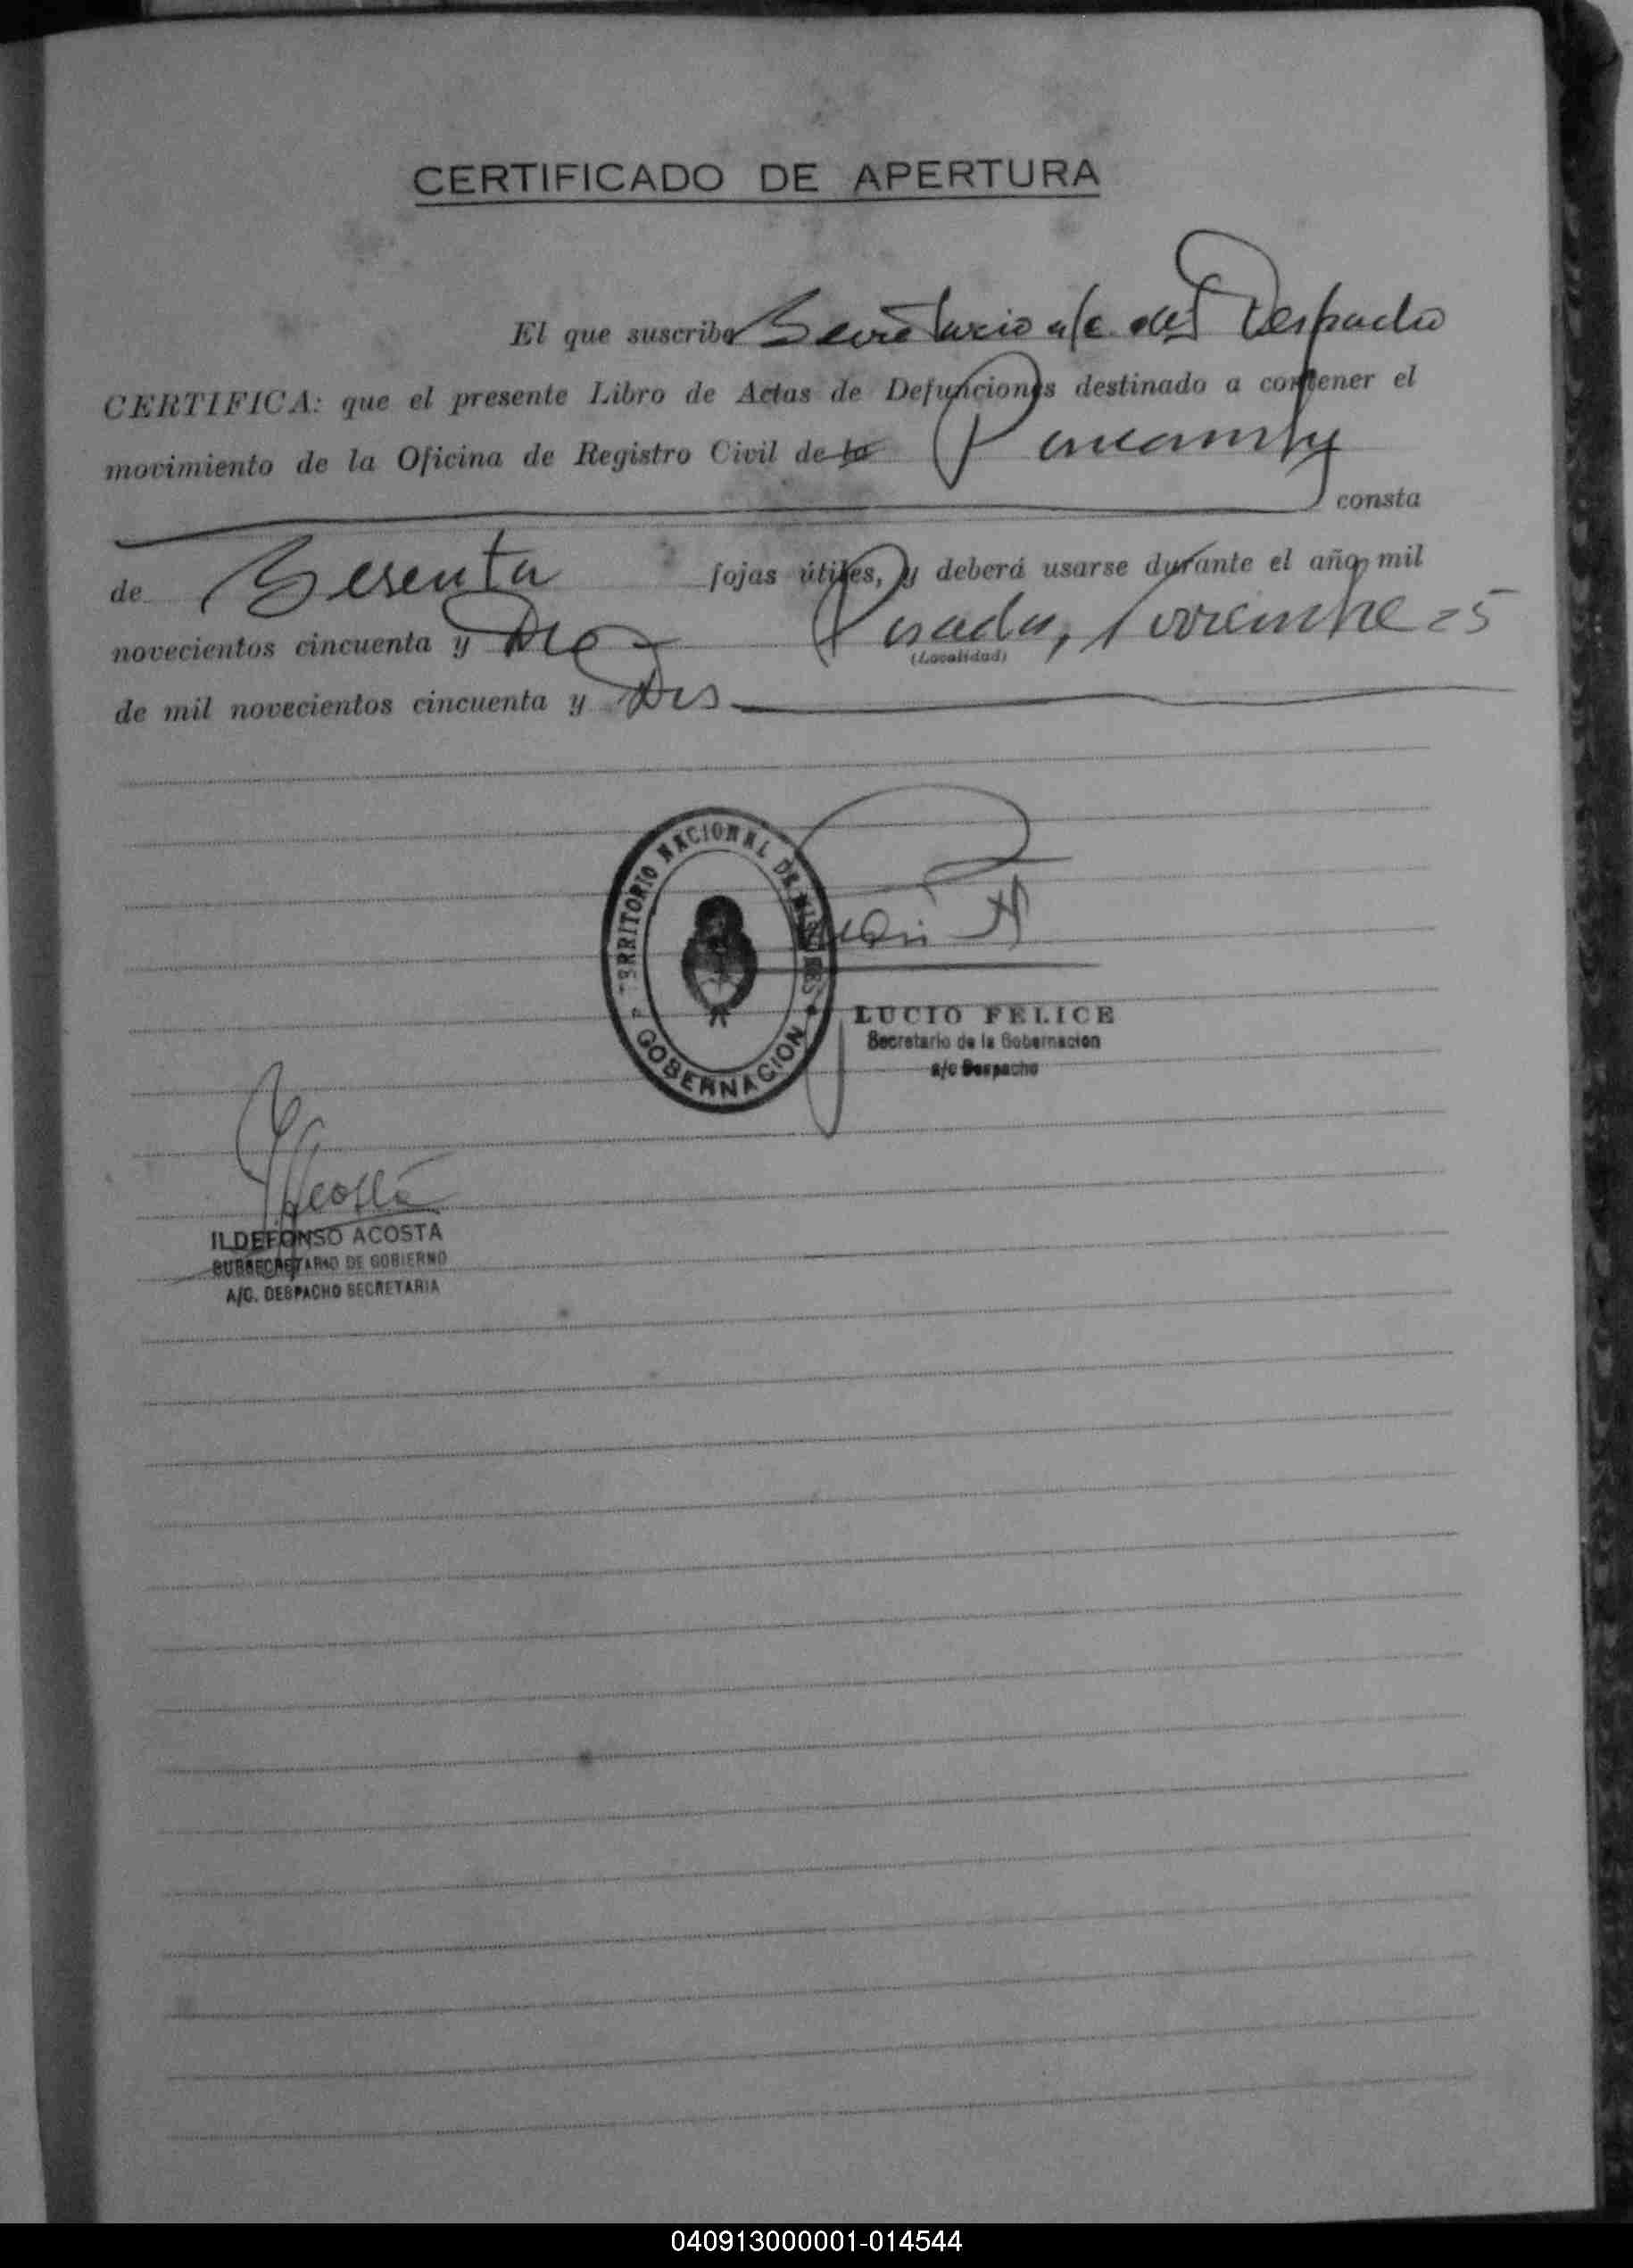 CERTIFICADO DE APERTURA
El que suscribe Secretario a/c del Despacho
CERTIFICA: que el presente Libro de Actas de Defunciones destinado a contener el
movimiento de la Oficina de Registro Civil de la Panambí
consta
de Sesenta fojas útiles, y deberá usarse durante el año mil
novecientos cincuenta y Posadas, Noviembre 25
(Localidad)
de mil novecientos cincuenta y Dos
TERRITORIO NACIONAL DE MISIONES
GOBERNACION
LUCIO FELICE
Secretario de la Gobernacion
a/c Despacho
Acosta
ILDEFONSO ACOSTA
SUBSECRETARIO DE GOBIERNO
A/C. DESPACHO SECRETARIA
040913000001-014544